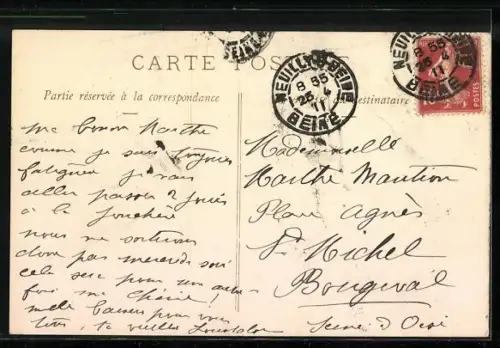 CARTE POSTALE
Partie réservée à la correspondance
destinataire
NEUILLY-S-SEINE
8 55
25 4
11
SEINE
NEUILLY-S-SEINE
8 55
25 4
11
SEINE
POSTES
ma bonne Marthe
comme je suis toujours
fatiguée je vais
aller passer 2 jours
à la Jonchère
nous ne sortirons
donc pas mercredi soir
cela sera pour une autre
fois ma chérie!
mille baisers pour vous
tous, ta vieille
Mademoiselle
Marthe Mantion
Place Agnès
St Michel
Bougival
Seine & Oise